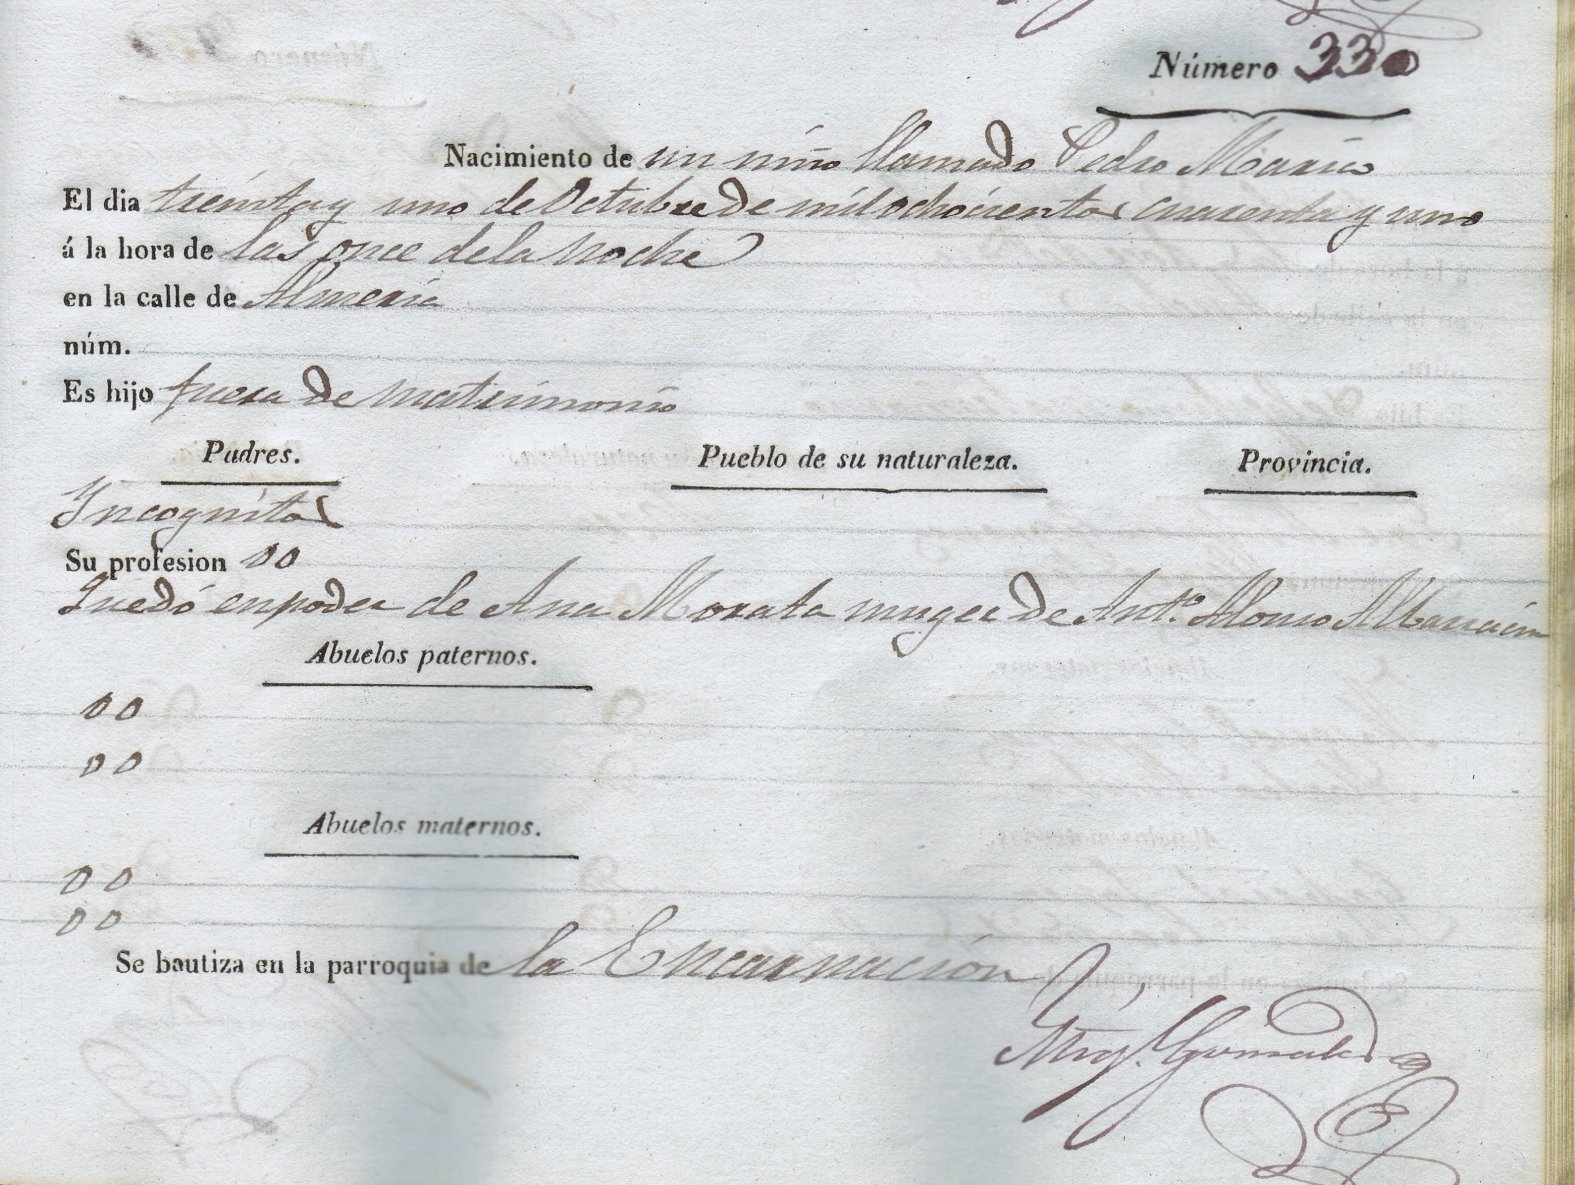 Número 330
Nacimiento de un niño llamado Pedro Maria
El dia treinta y uno de Octubre de mil ochocientos cuarenta y uno
á la hora de las once de la noche
en la calle de Almeria
núm.
Es hijo fuera de matrimonio
Padres. Pueblo de su naturaleza. Provincia.
Yncognitos
Su profesion 00
Quedó en poder de Ana Morata muger de Antº. Alonso
Abuelos paternos.
00
00
Abuelos maternos.
00
00
Se bautiza en la parroquia de la Encarnación
Mig. Gonzalez